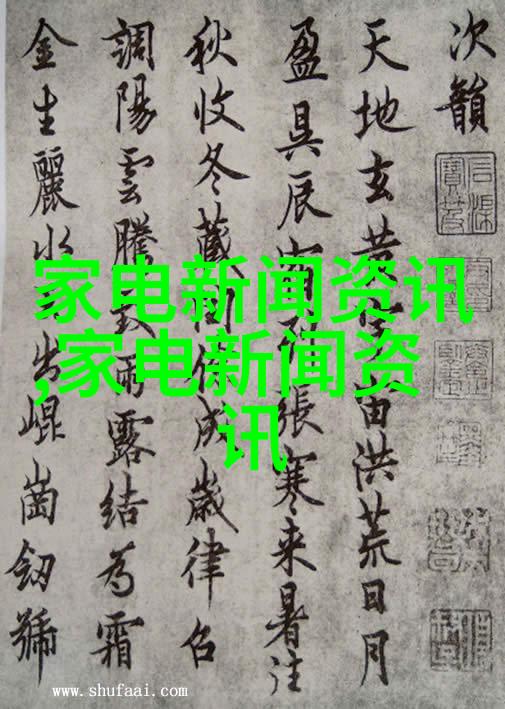 次韻
天地玄黃宇宙洪荒日月
盈昃辰宿列張寒来暑往
秋收冬藏閏餘成歲律召
調陽雲騰致雨露結為霜
金生麗水玉出崐崗劒號
家电新闻资讯
,家电新闻资
讯
www.shufaai.com